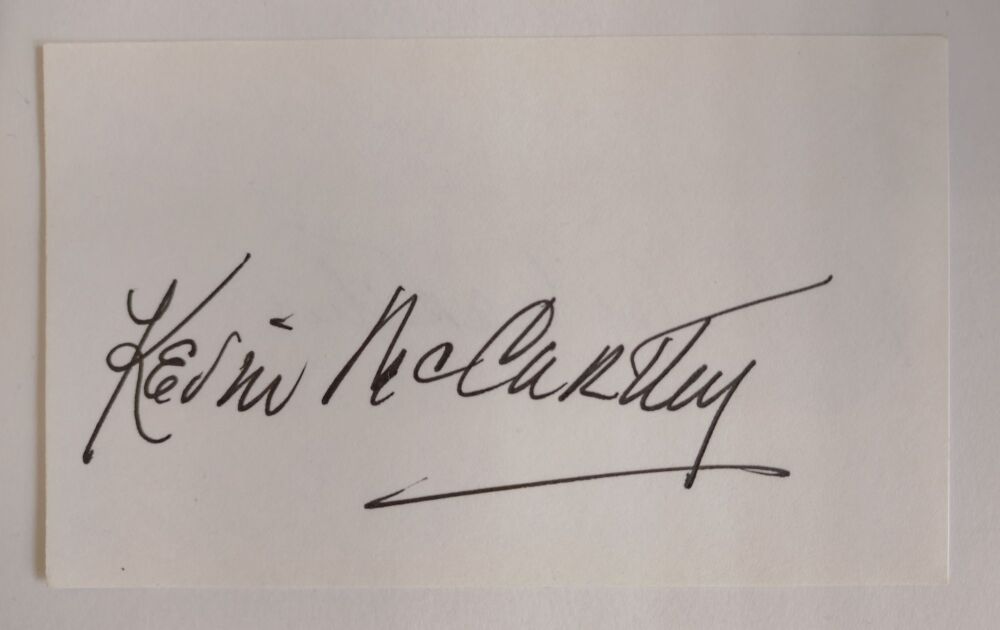 Kevin McCarthy